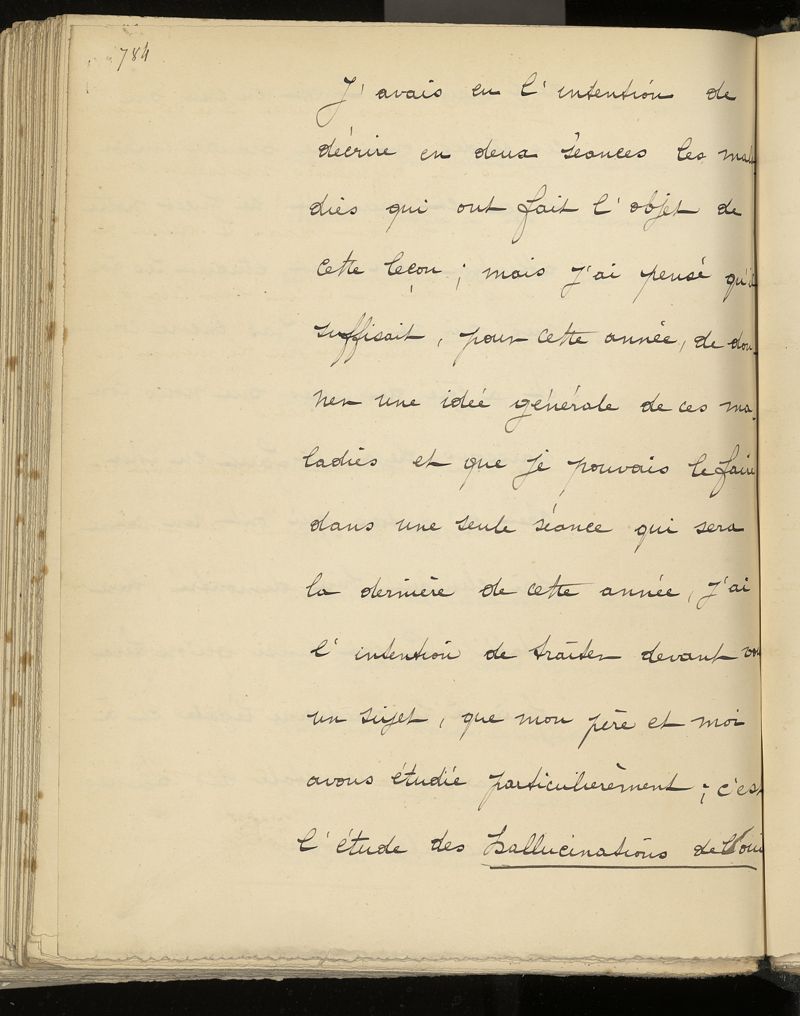 784
J'avais eu l'intention de
décrire en deux séances les mala
dies qui ont fait l'objet de
cette leçon ; mais j'ai pensé qu'il
suffisait, pour cette année, de don-
ner une idée générale de ces ma-
ladies et que je pouvais le faire
dans une seule séance qui sera
la dernière de cette année, j'ai
l'intention de traiter devant vous
un sujet, que mon père et moi
avons étudié particulièrement ; c'est
l'étude des hallucinations de l'ouie